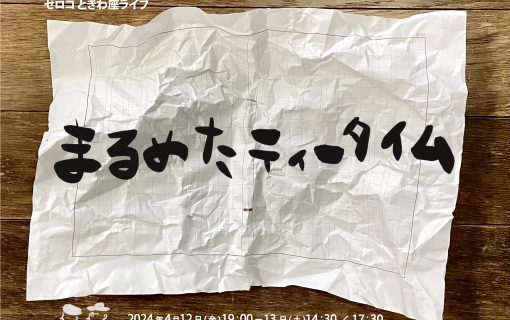 ゼロコ ときわ座ライブ
まるめたティータイム
2024年4月12日(金)19:00ー13日(土)14:30／17:30